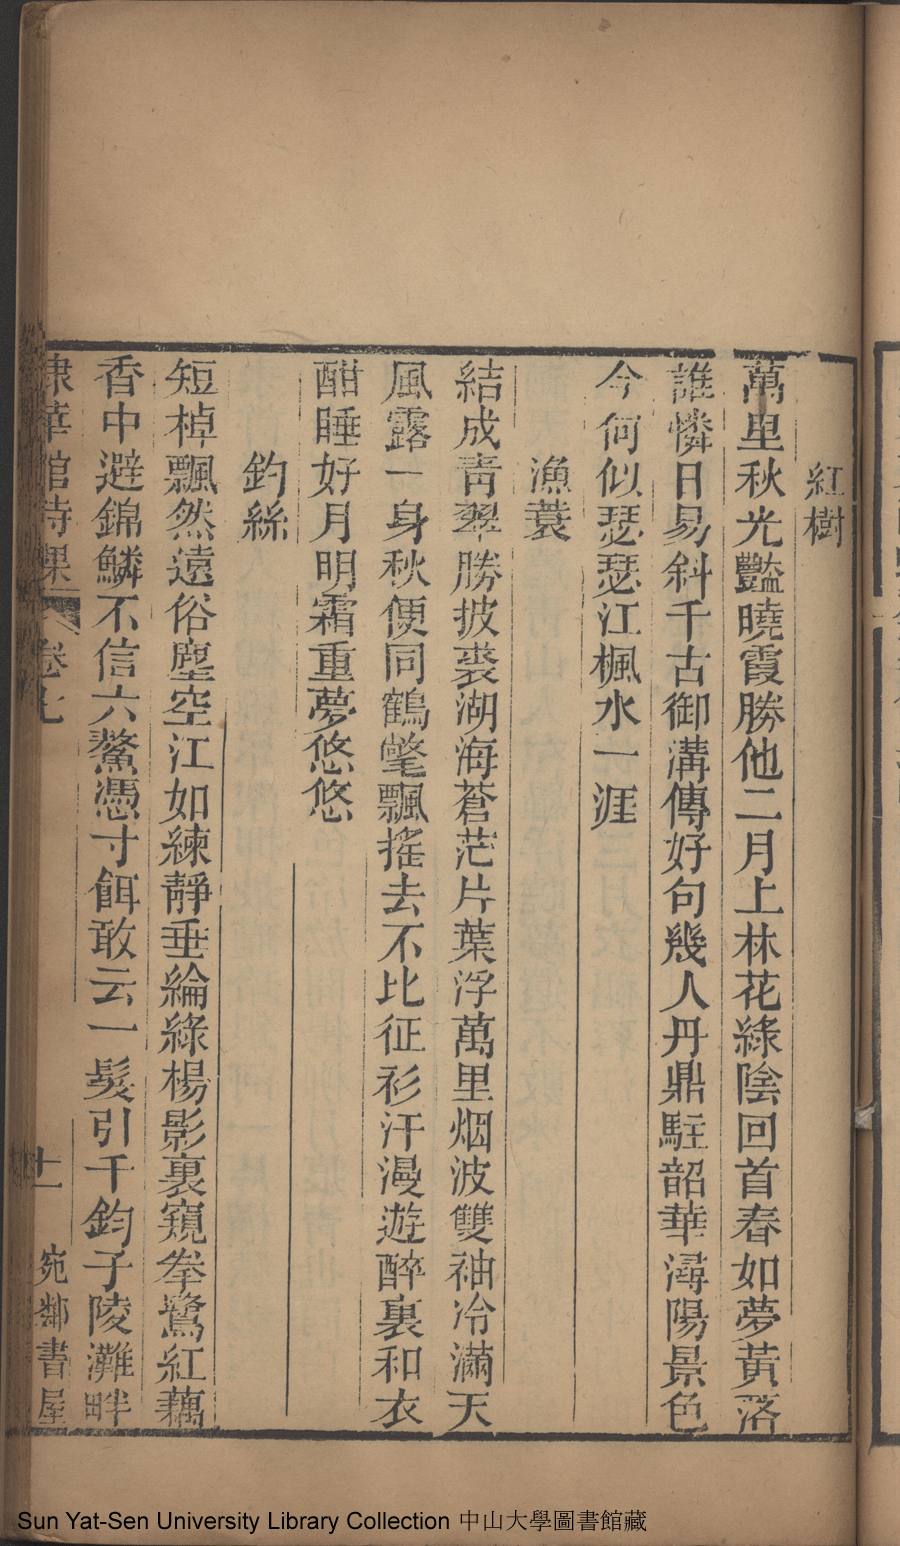 紅樹
萬里秋光豔曉霞勝他二月上林花綠陰回首春如夢黃落
誰憐日易斜千古御溝傳好句幾人丹鼎駐韶華潯陽景色
今何似瑟瑟江楓水一涯
漁蓑
結成青翠勝披裘湖海蒼茫片葉浮萬里烟波雙袖冷滿天
風露一身秋便同鶴氅飄搖去不比征衫汗漫遊醉裏和衣
酣睡好月明霜重夢悠悠
釣絲
短棹飄然遠俗塵空江如練靜垂綸綠楊影裏窺拳鷺紅藕
香中避錦鱗不信六鰲憑寸餌敢云一髮引千鈞子陵灘畔
隸華館詩課 卷七 十一 宛鄰書屋
Sun Yat-Sen University Library Collection 中山大學圖書館藏